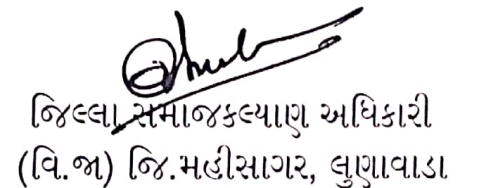 જિલ્લા સમાજકલ્યાણ અધિકારી
(વિ.જા) જિ.મહીસાગર, લુણાવાડા